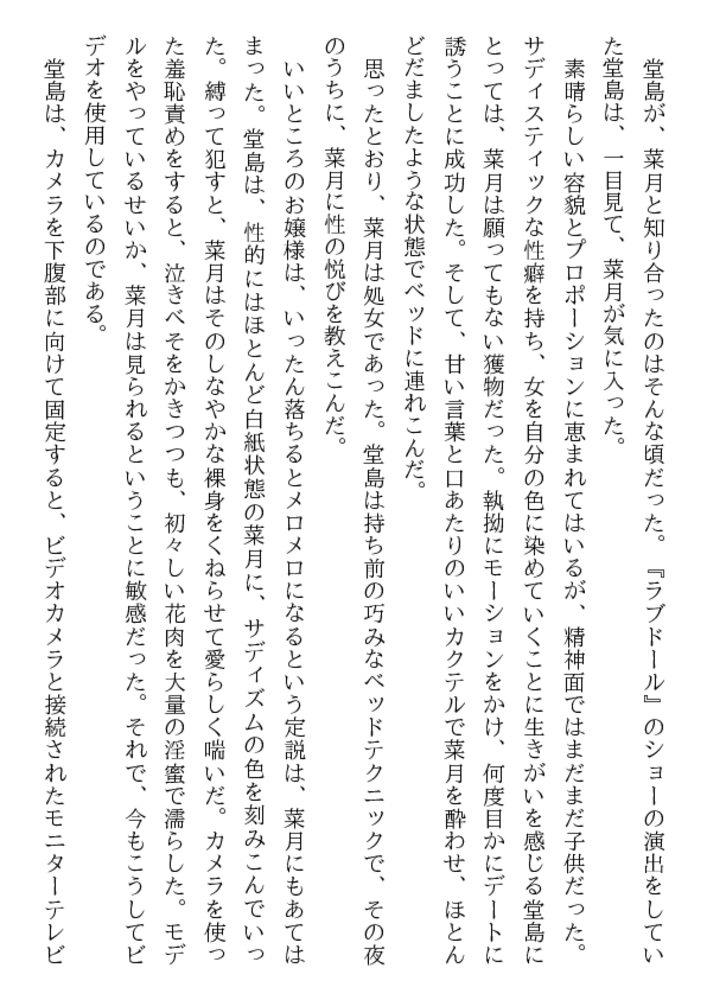 堂島が、菜月と知り合ったのはそんな頃だった。『ラブドール』のショーの演出をしてい
た堂島は、一目見て、菜月が気に入った。
　素晴らしい容貌とプロポーションに恵まれてはいるが、精神面ではまだまだ子供だった。
サディスティックな性癖を持ち、女を自分の色に染めていくことに生きがいを感じる堂島に
とっては、菜月は願ってもない獲物だった。執拗にモーションをかけ、何度目かにデートに
誘うことに成功した。そして、甘い言葉と口あたりのいいカクテルで菜月を酔わせ、ほとん
どだましたような状態でベッドに連れこんだ。
　思ったとおり、菜月は処女であった。堂島は持ち前の巧みなベッドテクニックで、その夜
のうちに、菜月に性の悦びを教えこんだ。
　いいところのお嬢様は、いったん落ちるとメロメロになるという定説は、菜月にもあては
まった。堂島は、性的にはほとんど白紙状態の菜月に、サディズムの色を刻みこんでいっ
た。縛って犯すと、菜月はそのしなやかな裸身をくねらせて愛らしく喘いだ。カメラを使っ
た羞恥責めをすると、泣きべそをかきつつも、初々しい花肉を大量の淫蜜で濡らした。モデ
ルをやっているせいか、菜月は見られるということに敏感だった。それで、今もこうしてビ
デオを使用しているのである。
　堂島は、カメラを下腹部に向けて固定すると、ビデオカメラと接続されたモニターテレビ